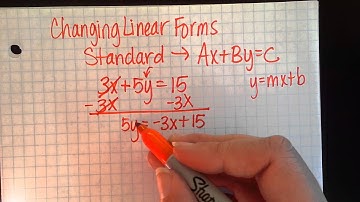 Changing Linear Forms
Standard → Ax+By=C
3x+5y=15
y=mx+b
-3x -3x
5y=-3x+15
Sharpie